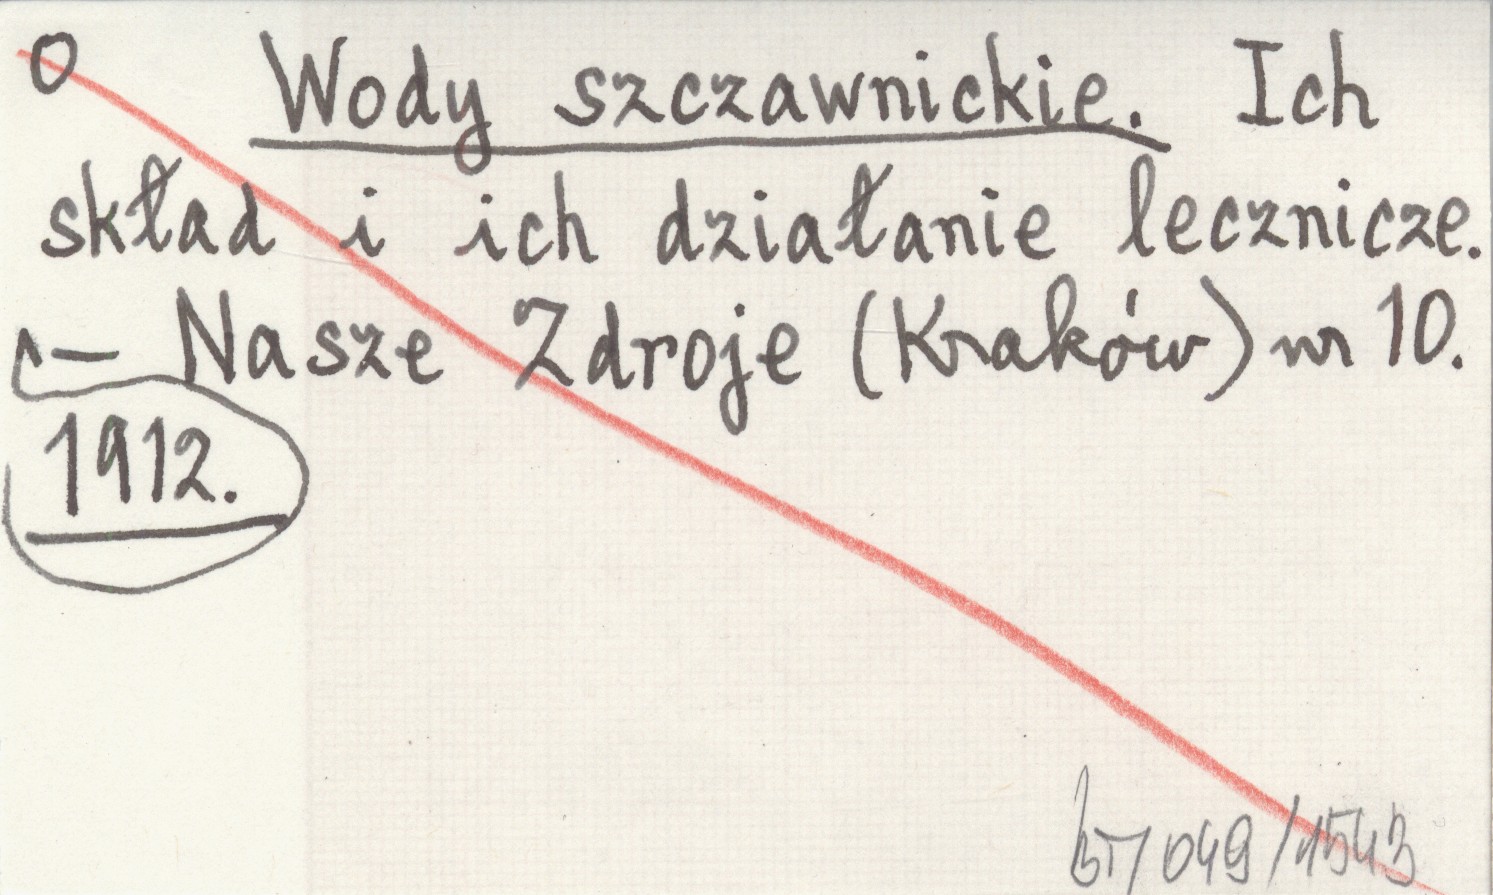 O Wody szczawnickie. Ich
skład i ich działanie lecznicze.
— Nasze Zdroje (Kraków) nr 10.
1912.
049/1543